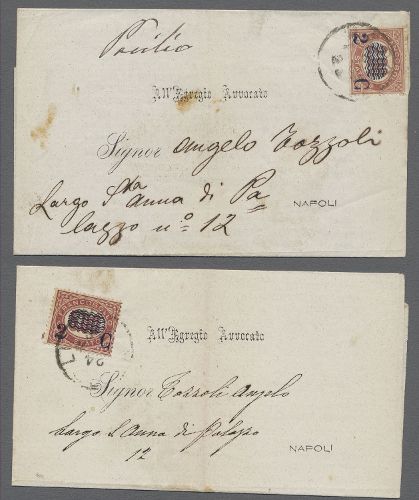 2 C
All'Egregio Avvocato
Signor Angelo Tozzoli
Largo Sta Anna di Pa
lazzo nº 12
NAPOLI
2 C
STATO
24
All'Egregio Avvocato
Signor Tozzoli Angelo
Largo S. Anna di Palazzo
12
NAPOLI